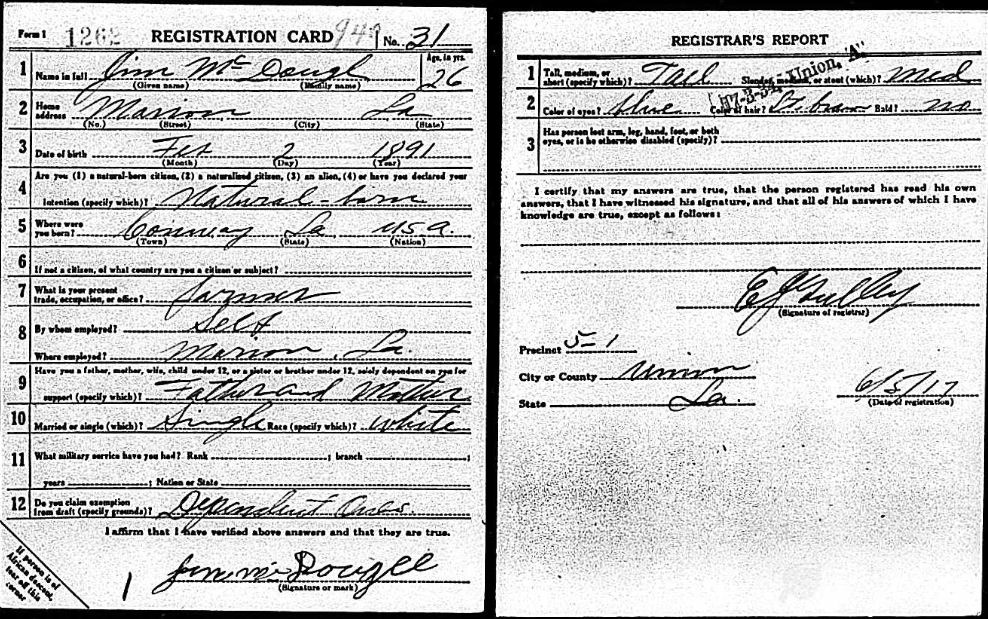 Form 1 1262 REGISTRATION CARD 949 No. 31
1 Name in full Jim McDough Age, in yrs. 26
(Given name) (Family name)
2 Home address Marion La
(No.) (Street) (City) (State)
3 Date of birth Feb 2 1891
(Month) (Day) (Year)
4 Are you (1) a natural-born citizen, (2) a naturalized citizen, (3) an alien, (4) or have you declared your
intention (specify which)? Natural-born
5 Where were you born? Conway La USA.
(Town) (State) (Nation)
6 If not a citizen, of what country are you a citizen or subject?
7 What is your present trade, occupation, or office? farmer
8 By whom employed? Self
Where employed? Marion, La.
9 Have you a father, mother, wife, child under 12, or a sister or brother under 12, solely dependent on you for
support (specify which)? Father and Mother
10 Married or single (which)? Single Race (specify which)? white
11 What military service have you had? Rank ; branch ;
years ; Nation or State
12 Do you claim exemption from draft (specify grounds)? Dependent
I affirm that I have verified above answers and that they are true.
Jim Mc Dougle
(Signature or mark)
If person is of
African descent,
tear off this
corner
REGISTRAR'S REPORT
1 Tall, medium, or short (specify which)? Tall Slender, medium, or stout (which)? Med
Union, "A"
2 Color of eyes? blue Color of hair? Lt. brown Bald? no
3 Has person lost arm, leg, hand, foot, or both
eyes, or is he otherwise disabled (specify)?
I certify that my answers are true, that the person registered has read his own
answers, that I have witnessed his signature, and that all of his answers of which I have
knowledge are true, except as follows:
E J Gulley
(Signature of registrar)
Precinct 5-1
City or County Union
State La.
6/5/17
(Date of registration)